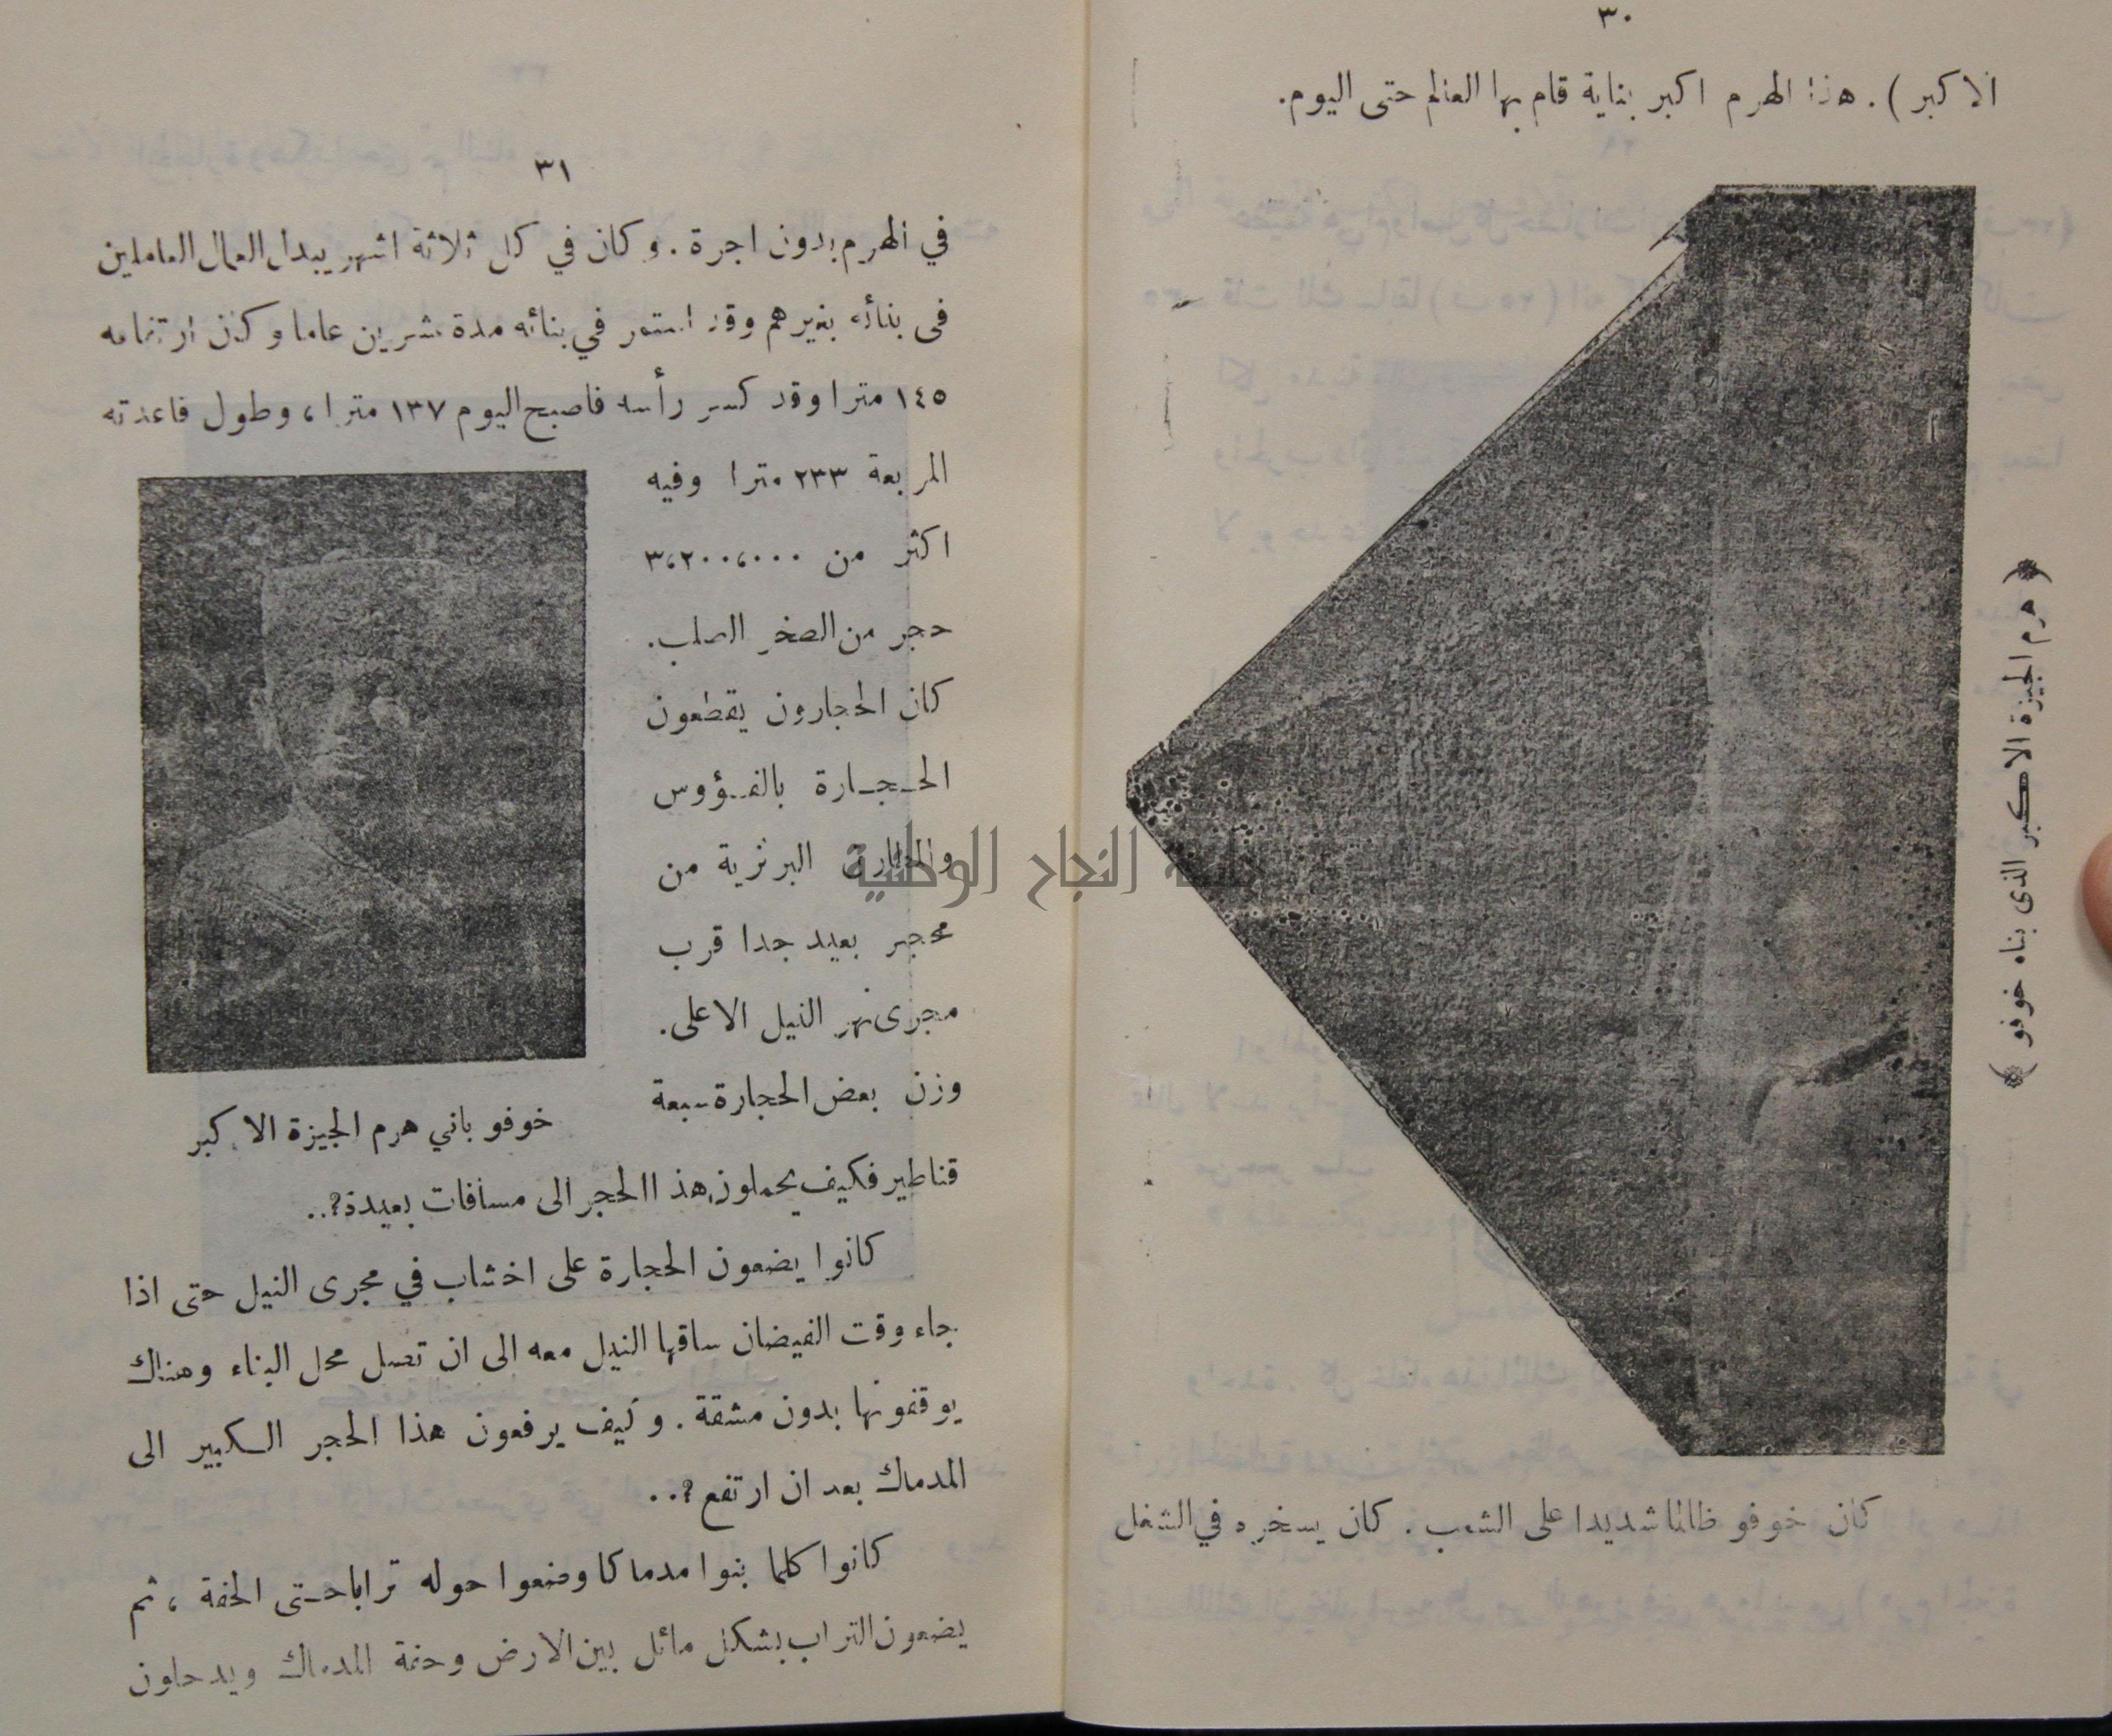 ٣٠
الاكبر). هذا الهرم اكبر بناية قام بها العالم حتى اليوم.
﴿ هرم الجيزة الاكبر الذى بناه خوفو ﴾
كان خوفو ظالما شديدا على الشعب. كان يسخره في الشغل
٣١
في الهرم بدون اجرة. وكان في كل ثلاثة اشهر يبدل العمال العاملين
فى بنائه بغيرهم وقد استمر في بنائه مدة عشرين عاما وكان ارتفاعه
١٤٥ مترا وقد كسر رأسه فاصبح اليوم ١٣٧ مترا، وطول قاعدته
المربعة ٢٣٣ مترا وفيه
اكثر من ٣،٢٠٠،٠٠٠
حجر من الصخر الصلب.
كان الحجارون يقطعون
الحـجـارة بالفـؤوس
البرنزية من
محجر بعيد جدا قرب
مجرى نهر النيل الاعلى.
وزن بعض الحجارة سبعة
خوفو باني هرم الجيزة الاكبر
قناطير فكيف يحملون هذا الحجر الى مسافات بعيدة؟..
كانوا يضعون الحجارة على اخشاب في مجرى النيل حتى اذا
جاء وقت الفيضان ساقها النيل معه الى ان تصل محل البناء وهناك
يوقفونها بدون مشقة. وكيف يرفعون هذا الحجر الـكبير الى
المدماك بعد ان ارتفع؟..
كانوا كلما بنوا مدماكا وضعوا حوله ترابا حـتى الحفة، ثم
يضعون التراب بشكل مائل بين الارض وحفة المدماك ويدحلون
جامعة النجاح الوطنية